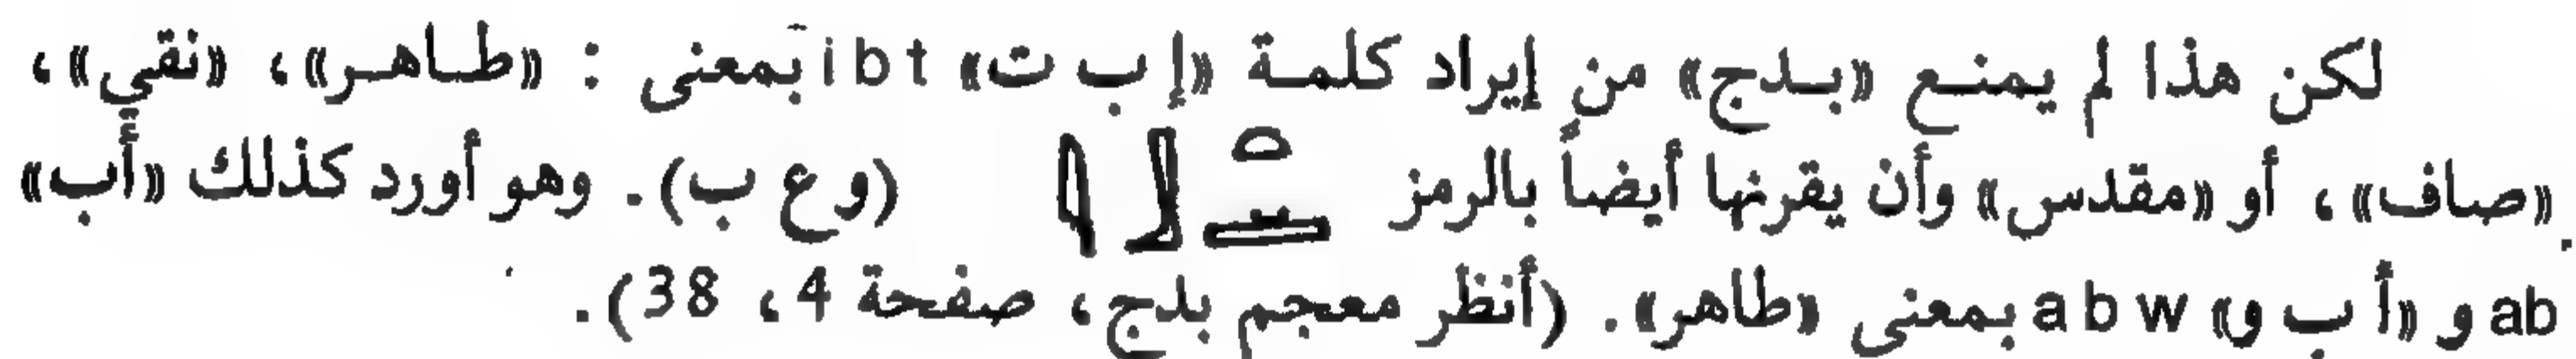 لكن هذا لم يمنع «بدج» من إيراد كلمة «إ ب ت» i b t بمعنى : «طاهر»، «نقي»،
«صاف»، أو «مقدس» وأن يقرنها أيضاً بالرمز 𓇋𓃀𓏏𓏠 (و ع ب). وهو أورد كذلك «أب»
ab و «أ ب و» a b w بمعنى «طاهر». (أنظر معجم بدج، صفحة 4، 38).